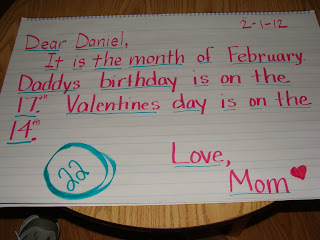 2-1-12
Dear Daniel,
It is the month of February.
Daddys birthday is on the
17.th Valentines day is on the
14.th
22
Love,
Mom